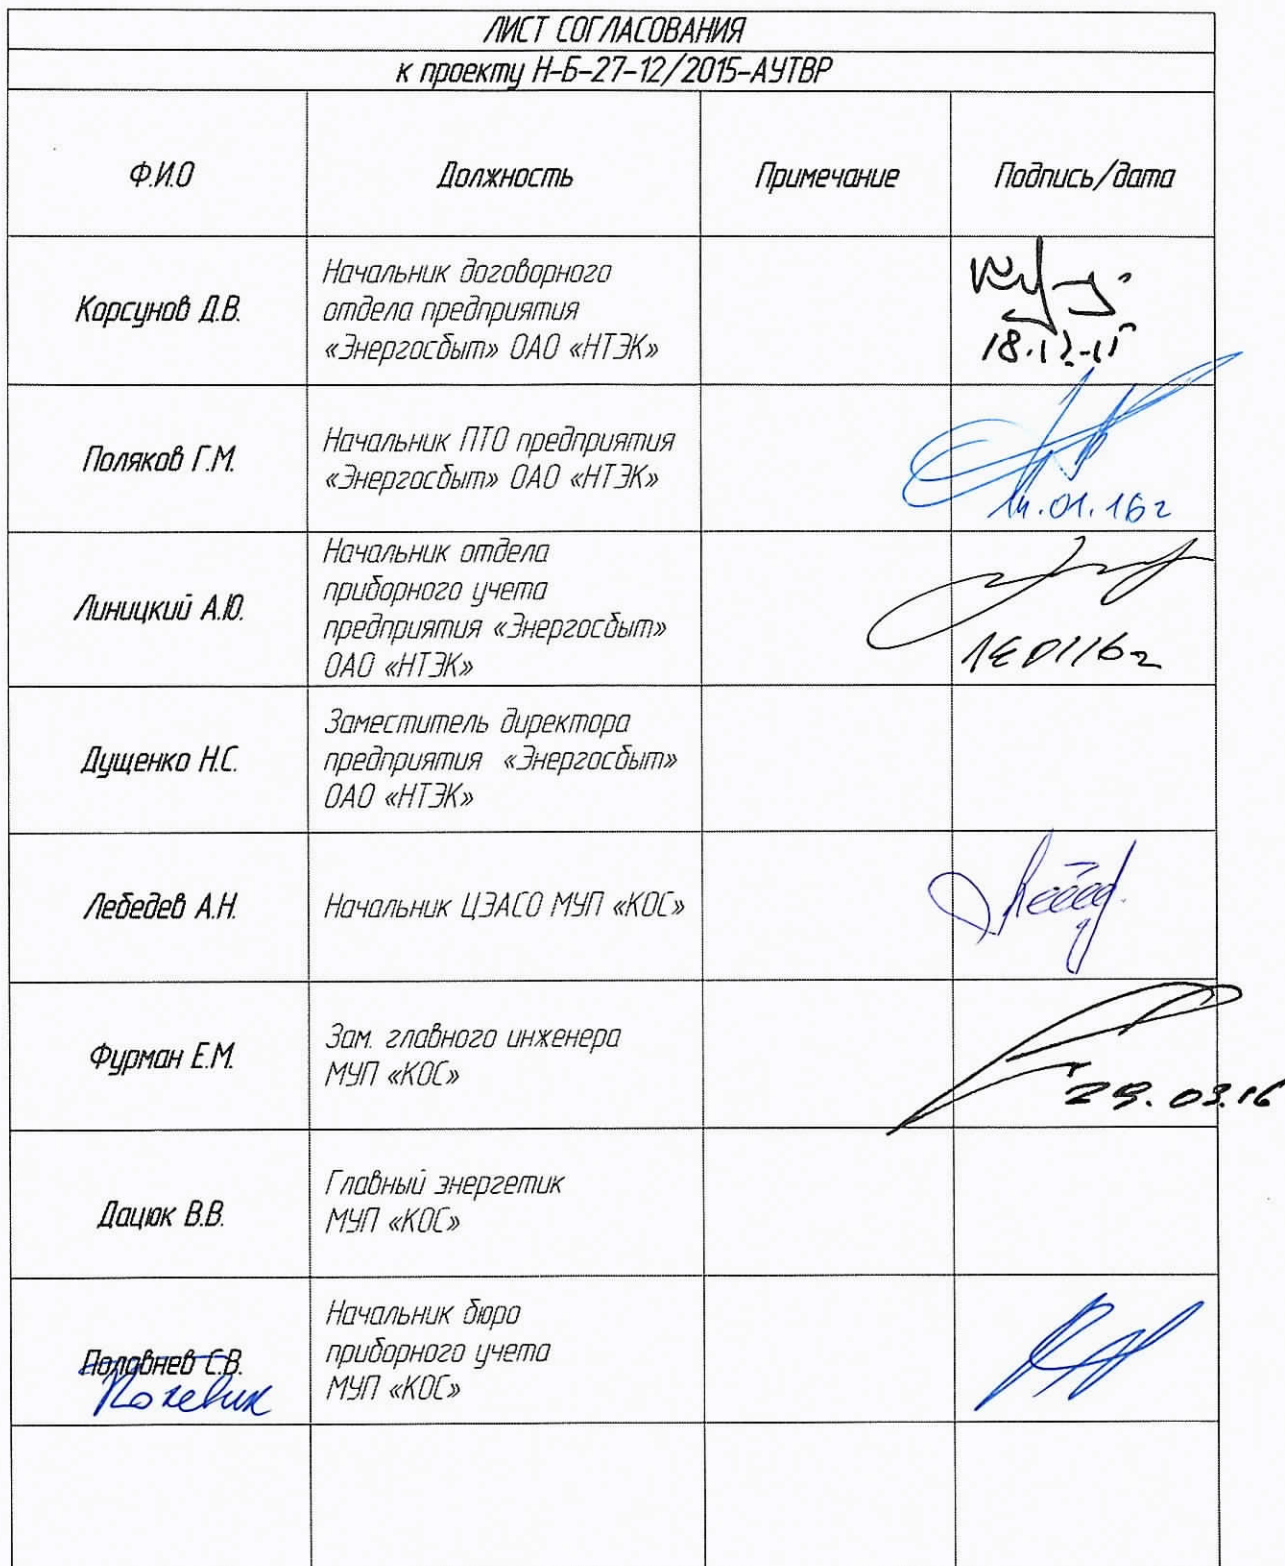 ЛИСТ СОГЛАСОВАНИЯ
к проекту Н-Б-27-12/2015-АУТВР
Ф.И.О
Должность
Примечание
Подпись/дата
Корсунов Д.В.
Начальник договорного
отдела предприятия
«Энергосбыт» ОАО «НТЭК»
18.12.15
Поляков Г.М.
Начальник ПТО предприятия
«Энергосбыт» ОАО «НТЭК»
14.01.16г
Линицкий А.Ю.
Начальник отдела
приборного учета
предприятия «Энергосбыт»
ОАО «НТЭК»
Дущенко Н.С.
Заместитель директора
предприятия «Энергосбыт»
ОАО «НТЭК»
Лебедев А.Н.
Начальник ЦЭАСО МУП «КОС»
Фурман Е.М.
Зам. главного инженера
МУП «КОС»
29.03.16
Дацюк В.В.
Главный энергетик
МУП «КОС»
Половнев С.В.
Начальник бюро
приборного учета
МУП «КОС»